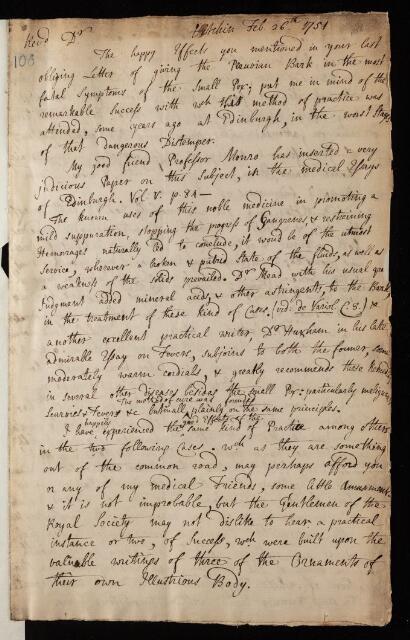 Hitchin Feb 26th 1751
Revd Dr
106
The happy Effects you mentioned in your last
obliging Letter of giving the Peruvian Bark in the most
fatal Symptoms of the Small Pox; put me in mind of the
remarkable Success with wch that method of practice was
attended, some years ago at Edinburgh, in the worst Stages
of that Dangerous Distemper.
My good friend Professor Monro has inserted a very
judicious Paper on this Subject, in the Medical Essays
of Edinburgh. Vol. V. p.
The known uses of this noble medicine in promoting a
mild suppuration, stopping the progress of Gangrenes & restraining
Hemorrages naturally led to conclude, it would be of the utmost
Service, wherever a broken & putrid State of the fluids, as well as
a weakness of the solids prevailed. Dr Mead with his usual
Judgment added mineral acids, & other astringents, to the Bark,
in the treatment of these kind of Cases. (vid. de Variol. C. 3.) &
another excellent practical writer, Dr Huxham in his late
admirable Essay on Fevers, subjoins to both the former, some
moderately warm cordials, & greatly recommends these Remedies
in several other diseases besides the Small Pox: particularly malignant
Scurvies & Fevers &c
The method of cure was formed
plainly on the same principles.
happily
good Effects of the
I have experienced the same kind of Practice among others
in the two following Cases. wch as they are something
out of the common road, may perhaps afford you
or any of my medical Friends, some little Amusement
& it is not improbable, but the Gentlemen of the
Royal Society may not dislike to hear a practical
instance or two, of Success, wch were built upon the
valuable writings of three of the Ornaments of
their own Illustrious Body.